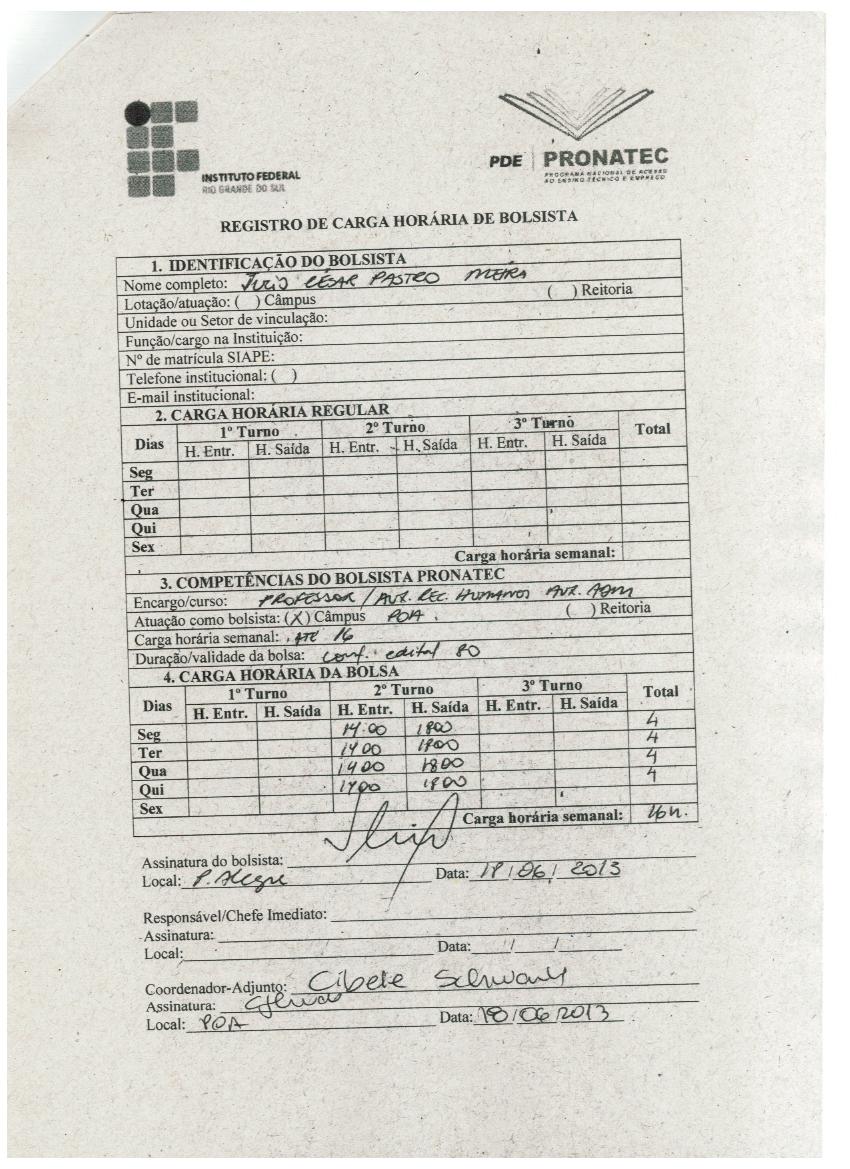 INSTITUTO FEDERAL
RIO GRANDE DO SUL
PDE PRONATEC
PROGRAMA NACIONAL DE ACESSO
AO ENSINO TÉCNICO E EMPREGO
REGISTRO DE CARGA HORÁRIA DE BOLSISTA
1. IDENTIFICAÇÃO DO BOLSISTA
Nome completo: JULIO CÉSAR PASTRO MEIRA
Lotação/atuação: ( ) Câmpus ( ) Reitoria
Unidade ou Setor de vinculação:
Função/cargo na Instituição:
Nº de matrícula SIAPE:
Telefone institucional: ( )
E-mail institucional:
2. CARGA HORÁRIA REGULAR
Dias 1º Turno 2º Turno 3º Turno Total
H. Entr. H. Saída H. Entr. H. Saída H. Entr. H. Saída
Seg
Ter
Qua
Qui
Sex
Carga horária semanal:
3. COMPETÊNCIAS DO BOLSISTA PRONATEC
Encargo/curso: PROFESSOR / AUX. REC. HUMANOS AUX. ADM
Atuação como bolsista: (X) Câmpus POA. ( ) Reitoria
Carga horária semanal: ATÉ 16
Duração/validade da bolsa: conf. edital 80
4. CARGA HORÁRIA DA BOLSA
Dias 1º Turno 2º Turno 3º Turno Total
H. Entr. H. Saída H. Entr. H. Saída H. Entr. H. Saída
Seg 14:00 1800 4
Ter 1400 1800 4
Qua 1400 1800 4
Qui 1400 1800 4
Sex
Carga horária semanal: 16h.
Assinatura do bolsista:
Local: P. Alegre Data: 18/06/2013
Responsável/Chefe Imediato:
Assinatura:
Local: Data: / /
Coordenador-Adjunto: Cibele Schwanke
Assinatura:
Local: POA Data: 18/06/2013